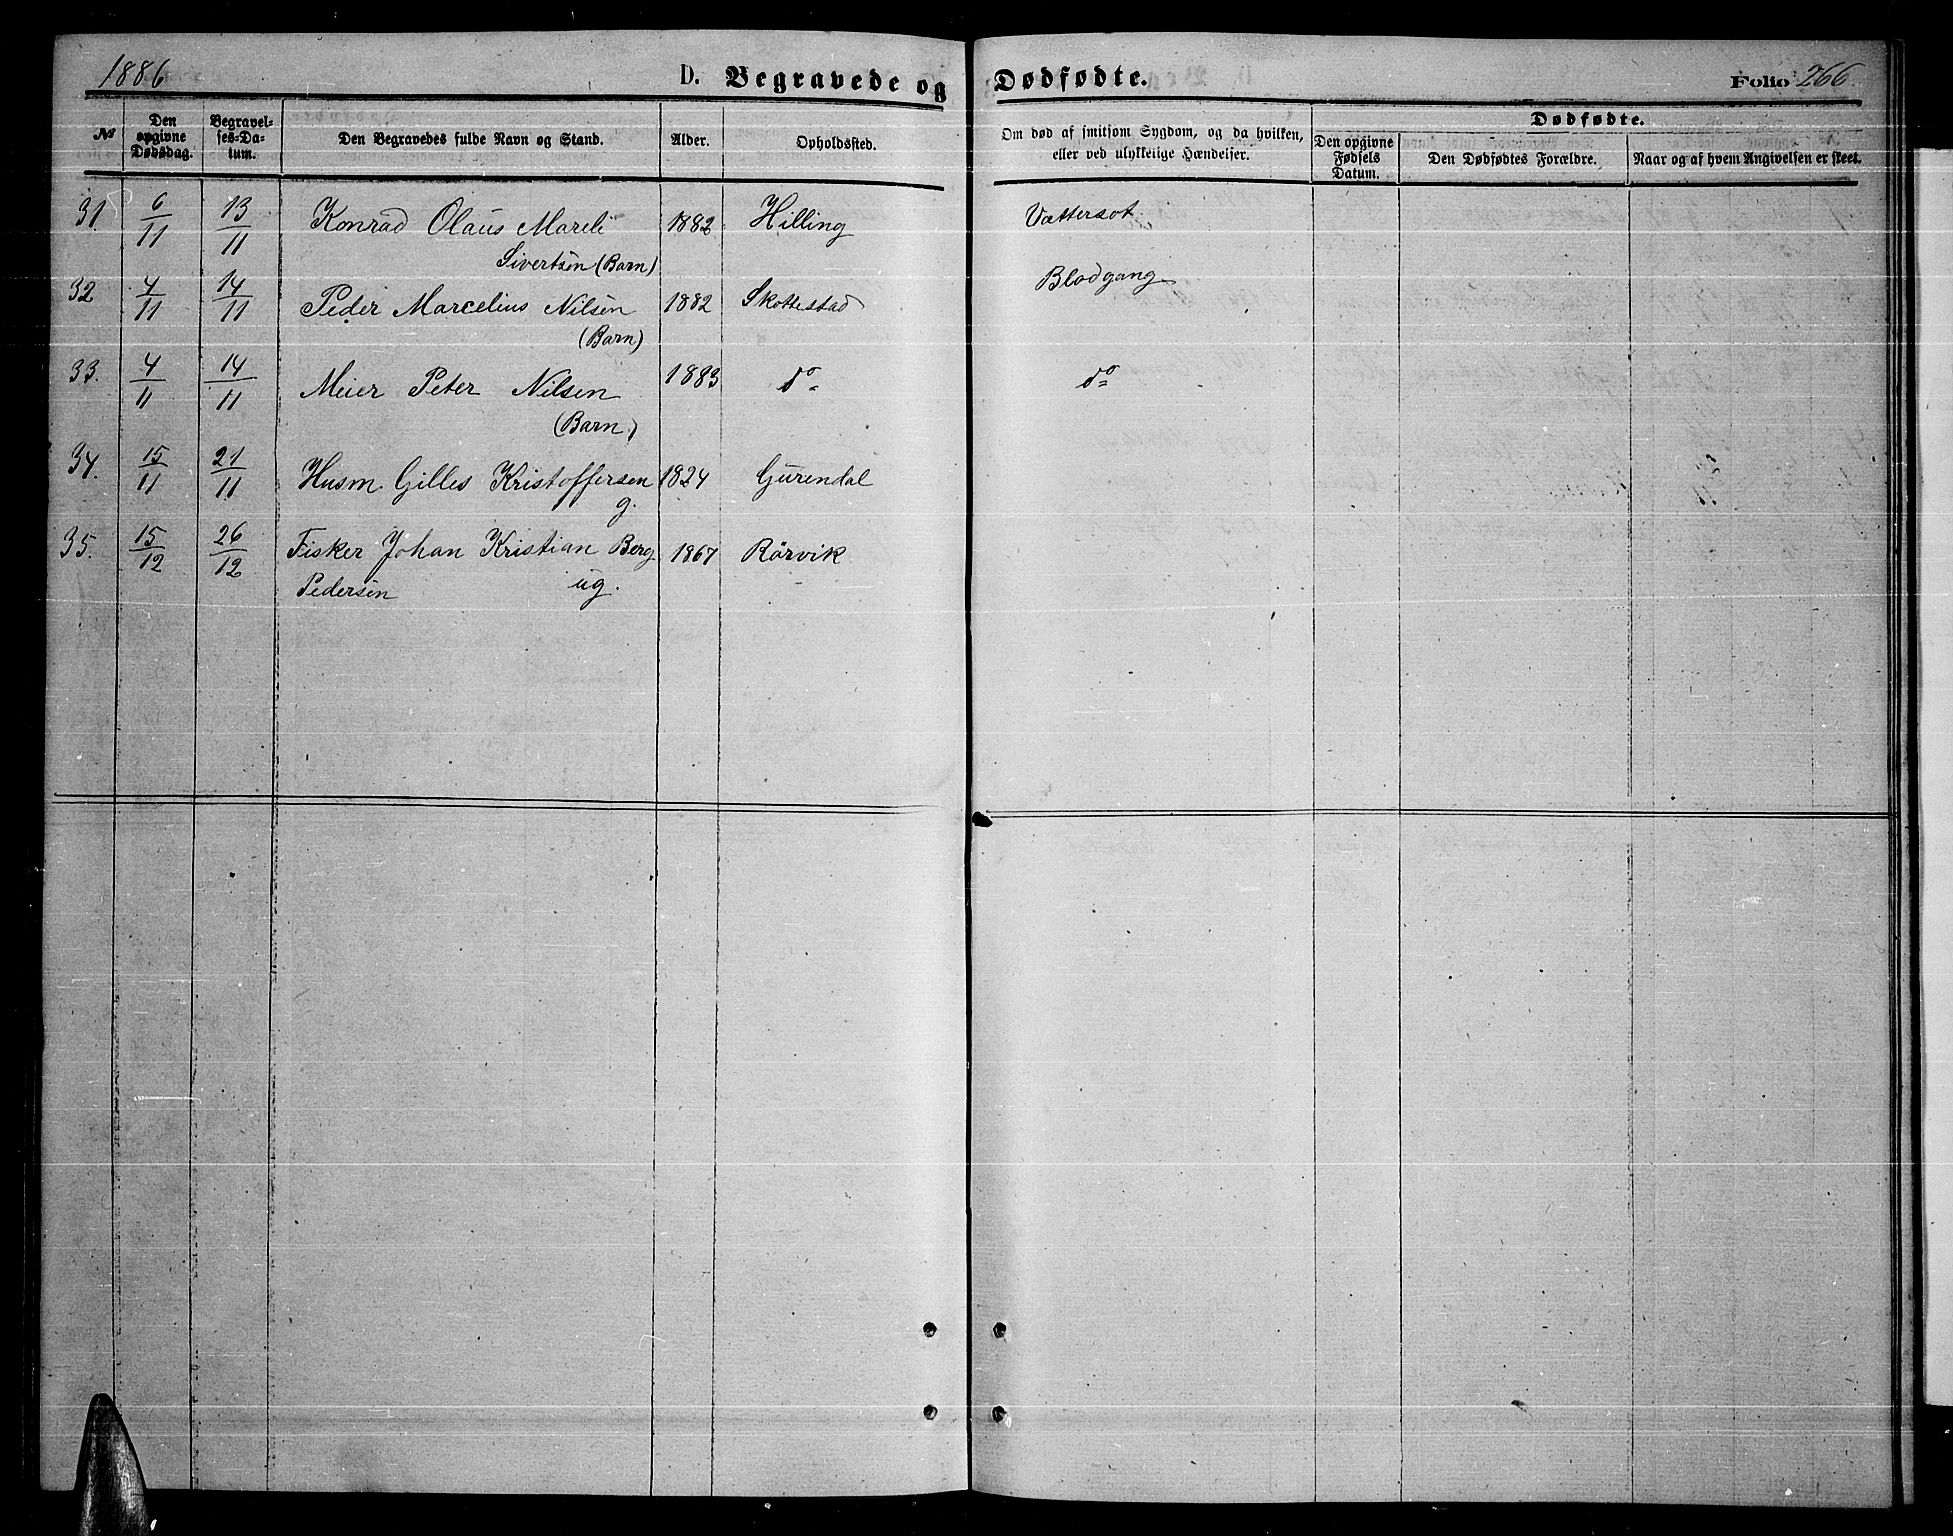 1886
D. Begravede og Dødfødte.
Folio 266
№
Den opgivne Dødsdag.
Begravelses-Datum.
Den Begravedes fulde Navn og Stand.
Alder.
Opholdssted.
Om død af smitsom Sygdom, og da hvilken,
eller ved ulykkelige Hændelser.
Dødfødte.
Den opgivne Fødsels Datum.
Den Dødfødtes Forældre.
Naar og af hvem Angivelsen er skeet.
31. 6/11 13/11 Konrad Olaus Mareli 1882 Hilling Vattersot
Sivertsen (Barn)
32 4/11 14/11 Peder Marcelius Nilsen 1882 Skottestad Blodgang
(Barn)
33. 4/11 14/11 Meier Peter Nilsen 1883 do do
(Barn)
34. 15/11 21/11 Husm. Gilles Kristoffersen 1824 Gurendal
g.
35. 15/12 26/12 Fisker Johan Kristian Berg 1867 Rörvik
Pedersen ug.